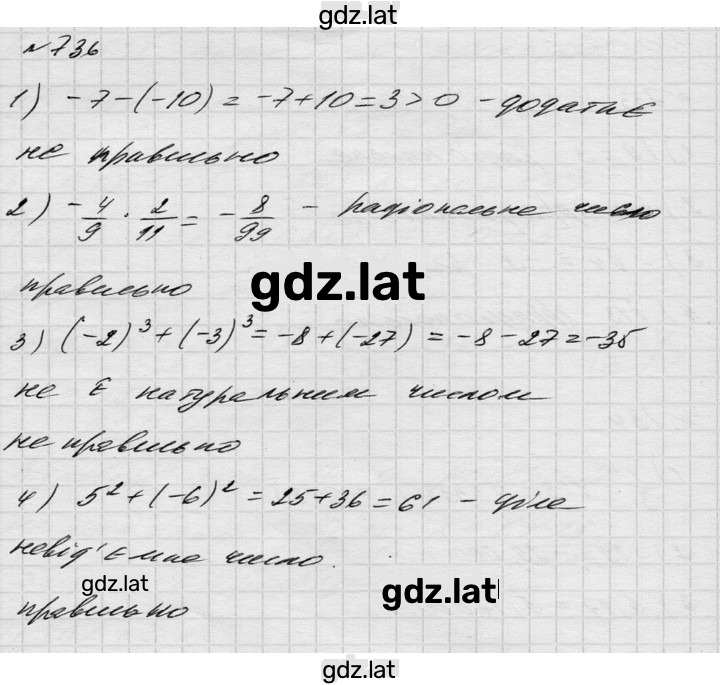 gdz.lat
№736
1) -7-(-10) = -7+10=3>0 - додатнє
не правильно
2) -4/9 · 2/11 = -8/99 - раціональне число
правильно
gdz.lat
3) (-2)³+(-3)³= -8+(-27) = -8-27=-35
не є натуральним числом
не правильно
4) 5²+(-6)² = 25+36=61 - ціле
невід'ємне число.
gdz.lat
правильно
gdz.lat
gdz.lat